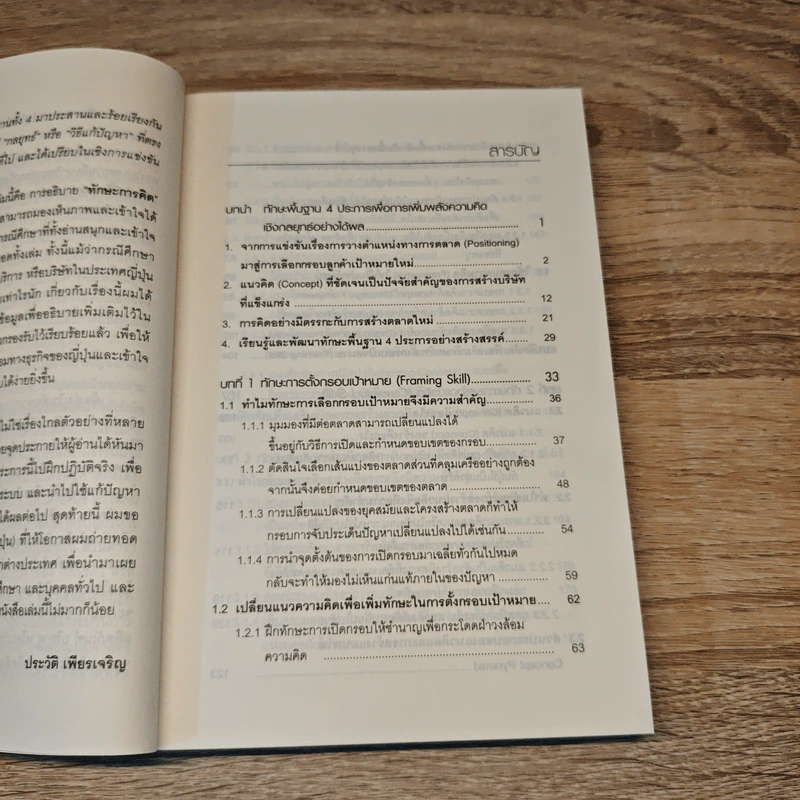 านทั้ง 4 มาประสานและร้อยเรียงกัน
"กลยุทธ์" หรือ "วิธีแก้ปัญหา" ที่ตรง
ไป และได้เปรียบในเชิงการแข่งขัน
นี้คือ การอธิบาย "ทักษะการคิด"
สามารถมองเห็นภาพและเข้าใจได้
กรณีศึกษาที่ทั้งอ่านสนุกและเข้าใจ
ตลอดทั้งเล่ม ทั้งนี้แม้ว่ากรณีศึกษา
บริการ หรือบริษัทในประเทศญี่ปุ่น
เท่าไรนัก เกี่ยวกับเรื่องนี้ผมได้
ข้อมูลเพื่ออธิบายเพิ่มเติมไว้ใน
กรองรับไว้เรียบร้อยแล้ว เพื่อให้
อมทางธุรกิจของญี่ปุ่นและเข้าใจ
ได้ง่ายยิ่งขึ้น
ไม่ใช่เรื่องไกลตัวอย่างที่หลาย
ยจุดประกายให้ผู้อ่านได้หันมา
ประการนี้ไปฝึกปฏิบัติจริง เพื่อ
ระบบ และนำไปใช้แก้ปัญหา
ได้ผลต่อไป สุดท้ายนี้ ผมขอ
ปุ่น) ที่ให้โอกาสผมถ่ายทอด
าต่างประเทศ เพื่อนำมาเผย
ศึกษา และบุคคลทั่วไป และ
นังสือเล่มนี้ไม่มากก็น้อย
ประวัติ เพียรเจริญ
สารบัญ
บทนำ ทักษะพื้นฐาน 4 ประการเพื่อการเพิ่มพลังความคิด
เชิงกลยุทธ์อย่างได้ผล 1
1. จากการแข่งขันเรื่องการวางตำแหน่งทางการตลาด (Positioning)
มาสู่การเลือกกรอบลูกค้าเป้าหมายใหม่ 2
2. แนวคิด (Concept) ที่ชัดเจนเป็นปัจจัยสำคัญของการสร้างบริษัท
ที่แข็งแกร่ง 12
3. การคิดอย่างมีตรรกะกับการสร้างตลาดใหม่ 21
4. เรียนรู้และพัฒนาทักษะพื้นฐาน 4 ประการอย่างสร้างสรรค์ 29
บทที่ 1 ทักษะการตั้งกรอบเป้าหมาย (Framing Skill) 33
1.1 ทำไมทักษะการเลือกกรอบเป้าหมายจึงมีความสำคัญ 36
1.1.1 มุมมองที่มีต่อตลาดสามารถเปลี่ยนแปลงได้
ขึ้นอยู่กับวิธีการเปิดและกำหนดขอบเขตของกรอบ 37
1.1.2 ตัดสินใจเลือกเส้นแบ่งของตลาดส่วนที่คลุมเครืออย่างถูกต้อง
จากนั้นจึงค่อยกำหนดขอบเขตของตลาด 48
1.1.3 การเปลี่ยนแปลงของยุคสมัยและโครงสร้างตลาดก็ทำให้
กรอบการจับประเด็นปัญหาเปลี่ยนแปลงไปได้เช่นกัน 54
1.1.4 การนำจุดตั้งต้นของการเปิดกรอบมาเฉลี่ยทั่วกันไปหมด
กลับจะทำให้มองไม่เห็นแก่นแท้ภายในของปัญหา 59
1.2 เปลี่ยนแนวความคิดเพื่อเพิ่มทักษะในการตั้งกรอบเป้าหมาย 62
1.2.1 ฝึกทักษะการเปิดกรอบให้ชำนาญเพื่อกระโดดฝ่าวงล้อม
ความคิด 63